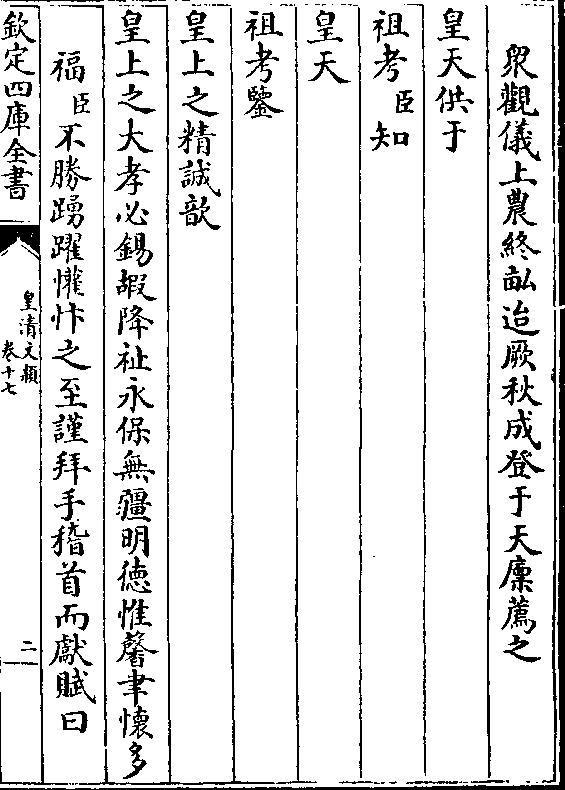 衆觀儀上農終畝迨厥秋成登于天廩薦之
皇天供于
祖考臣知
皇天
祖考鑒
皇上之精誠歆
皇上之大孝必錫嘏降祉永保無疆明德惟馨聿懷多
福臣不勝踴躍懽忭之至謹拜手稽首而獻賦曰
欽定四庫全書
皇清文穎
卷十七
二